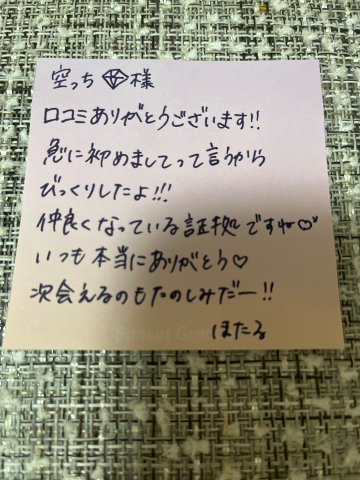 空っち💎様
口コミありがとうございます!!
急に初めましてって言うから
びっくりしたよ!!!
仲良くなっている証拠ですね♡
いつも本当にありがとう♡
次会えるのもたのしみだー!!
ほたる